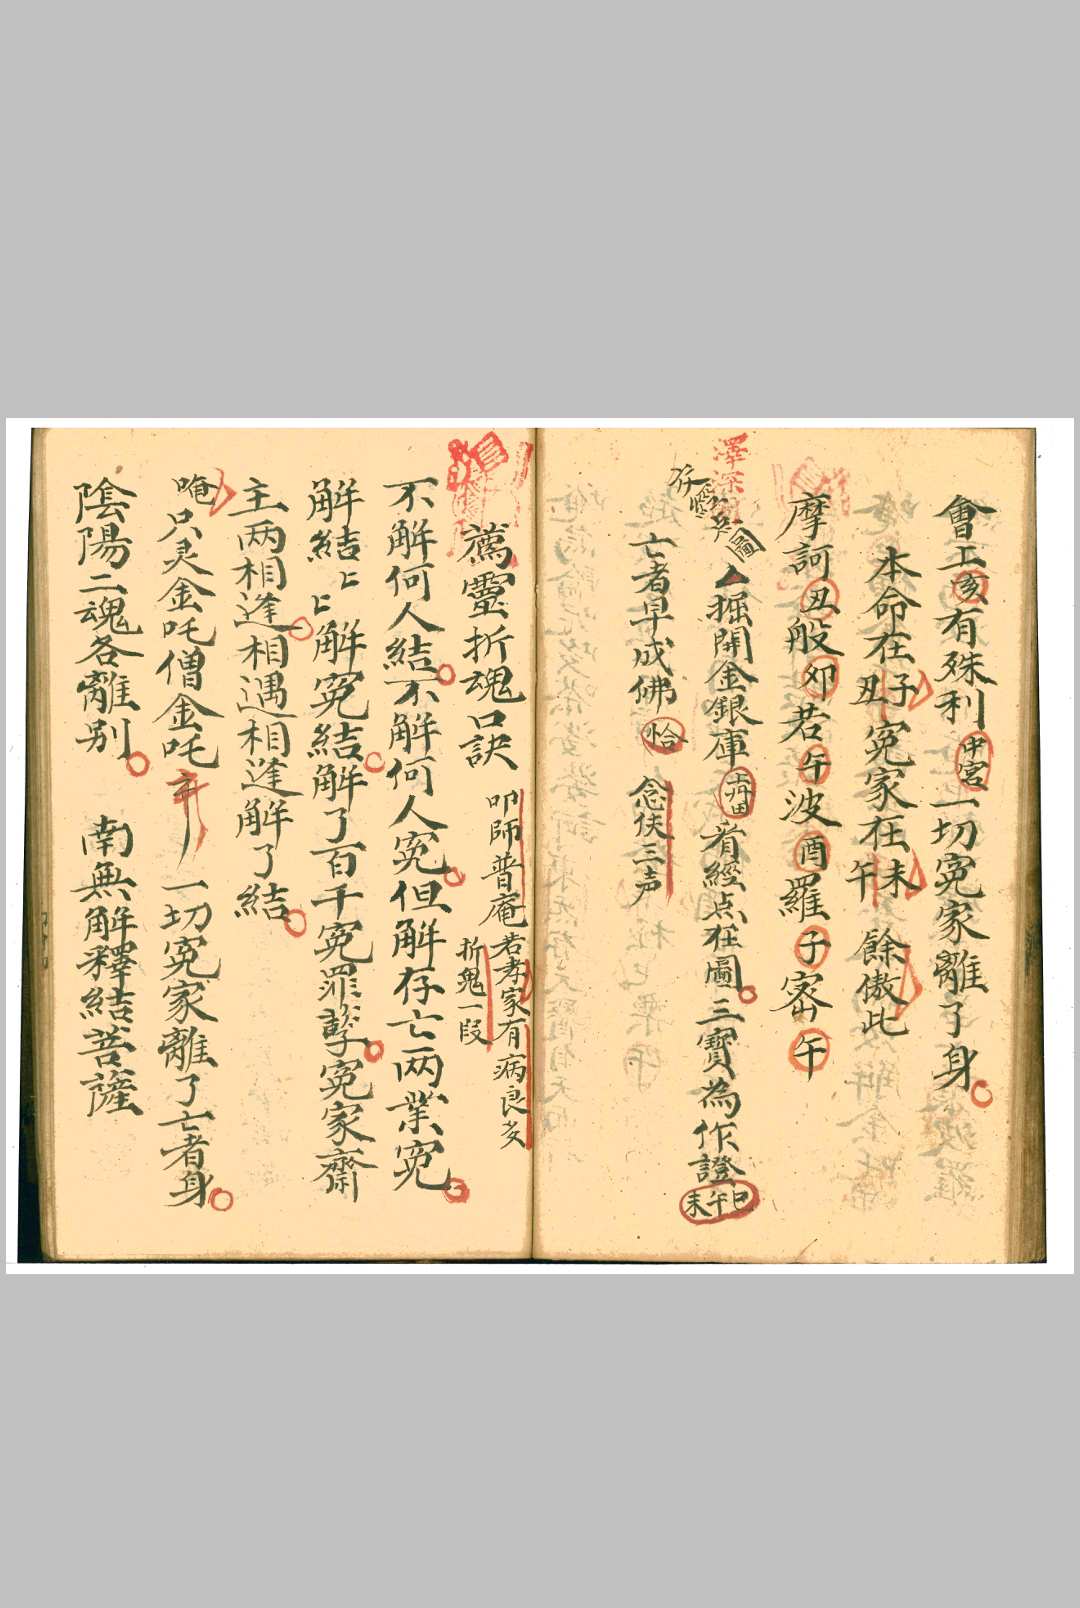 會工亥有殊利中宮一切冤家離了身
本命在子丑冤家在未午餘傲此
摩訶丑般卯若午波酉羅子密午
掘開金銀庫看經点在圖三寶為作證未午巳
亡者早成佛恰 念伕三声
薦靈折魂口訣 叩師普庵若孝家有病良多折鬼一段
不解何人結不解何人冤但解存亡两業冤
解結上上解冤結解了百千冤罪孽冤家齋
主两相逢相遇相逢解了結
唵只灵金吒僧金吒一切冤家離了亡者身
陰陽二魂各離别 南無解釋結菩薩